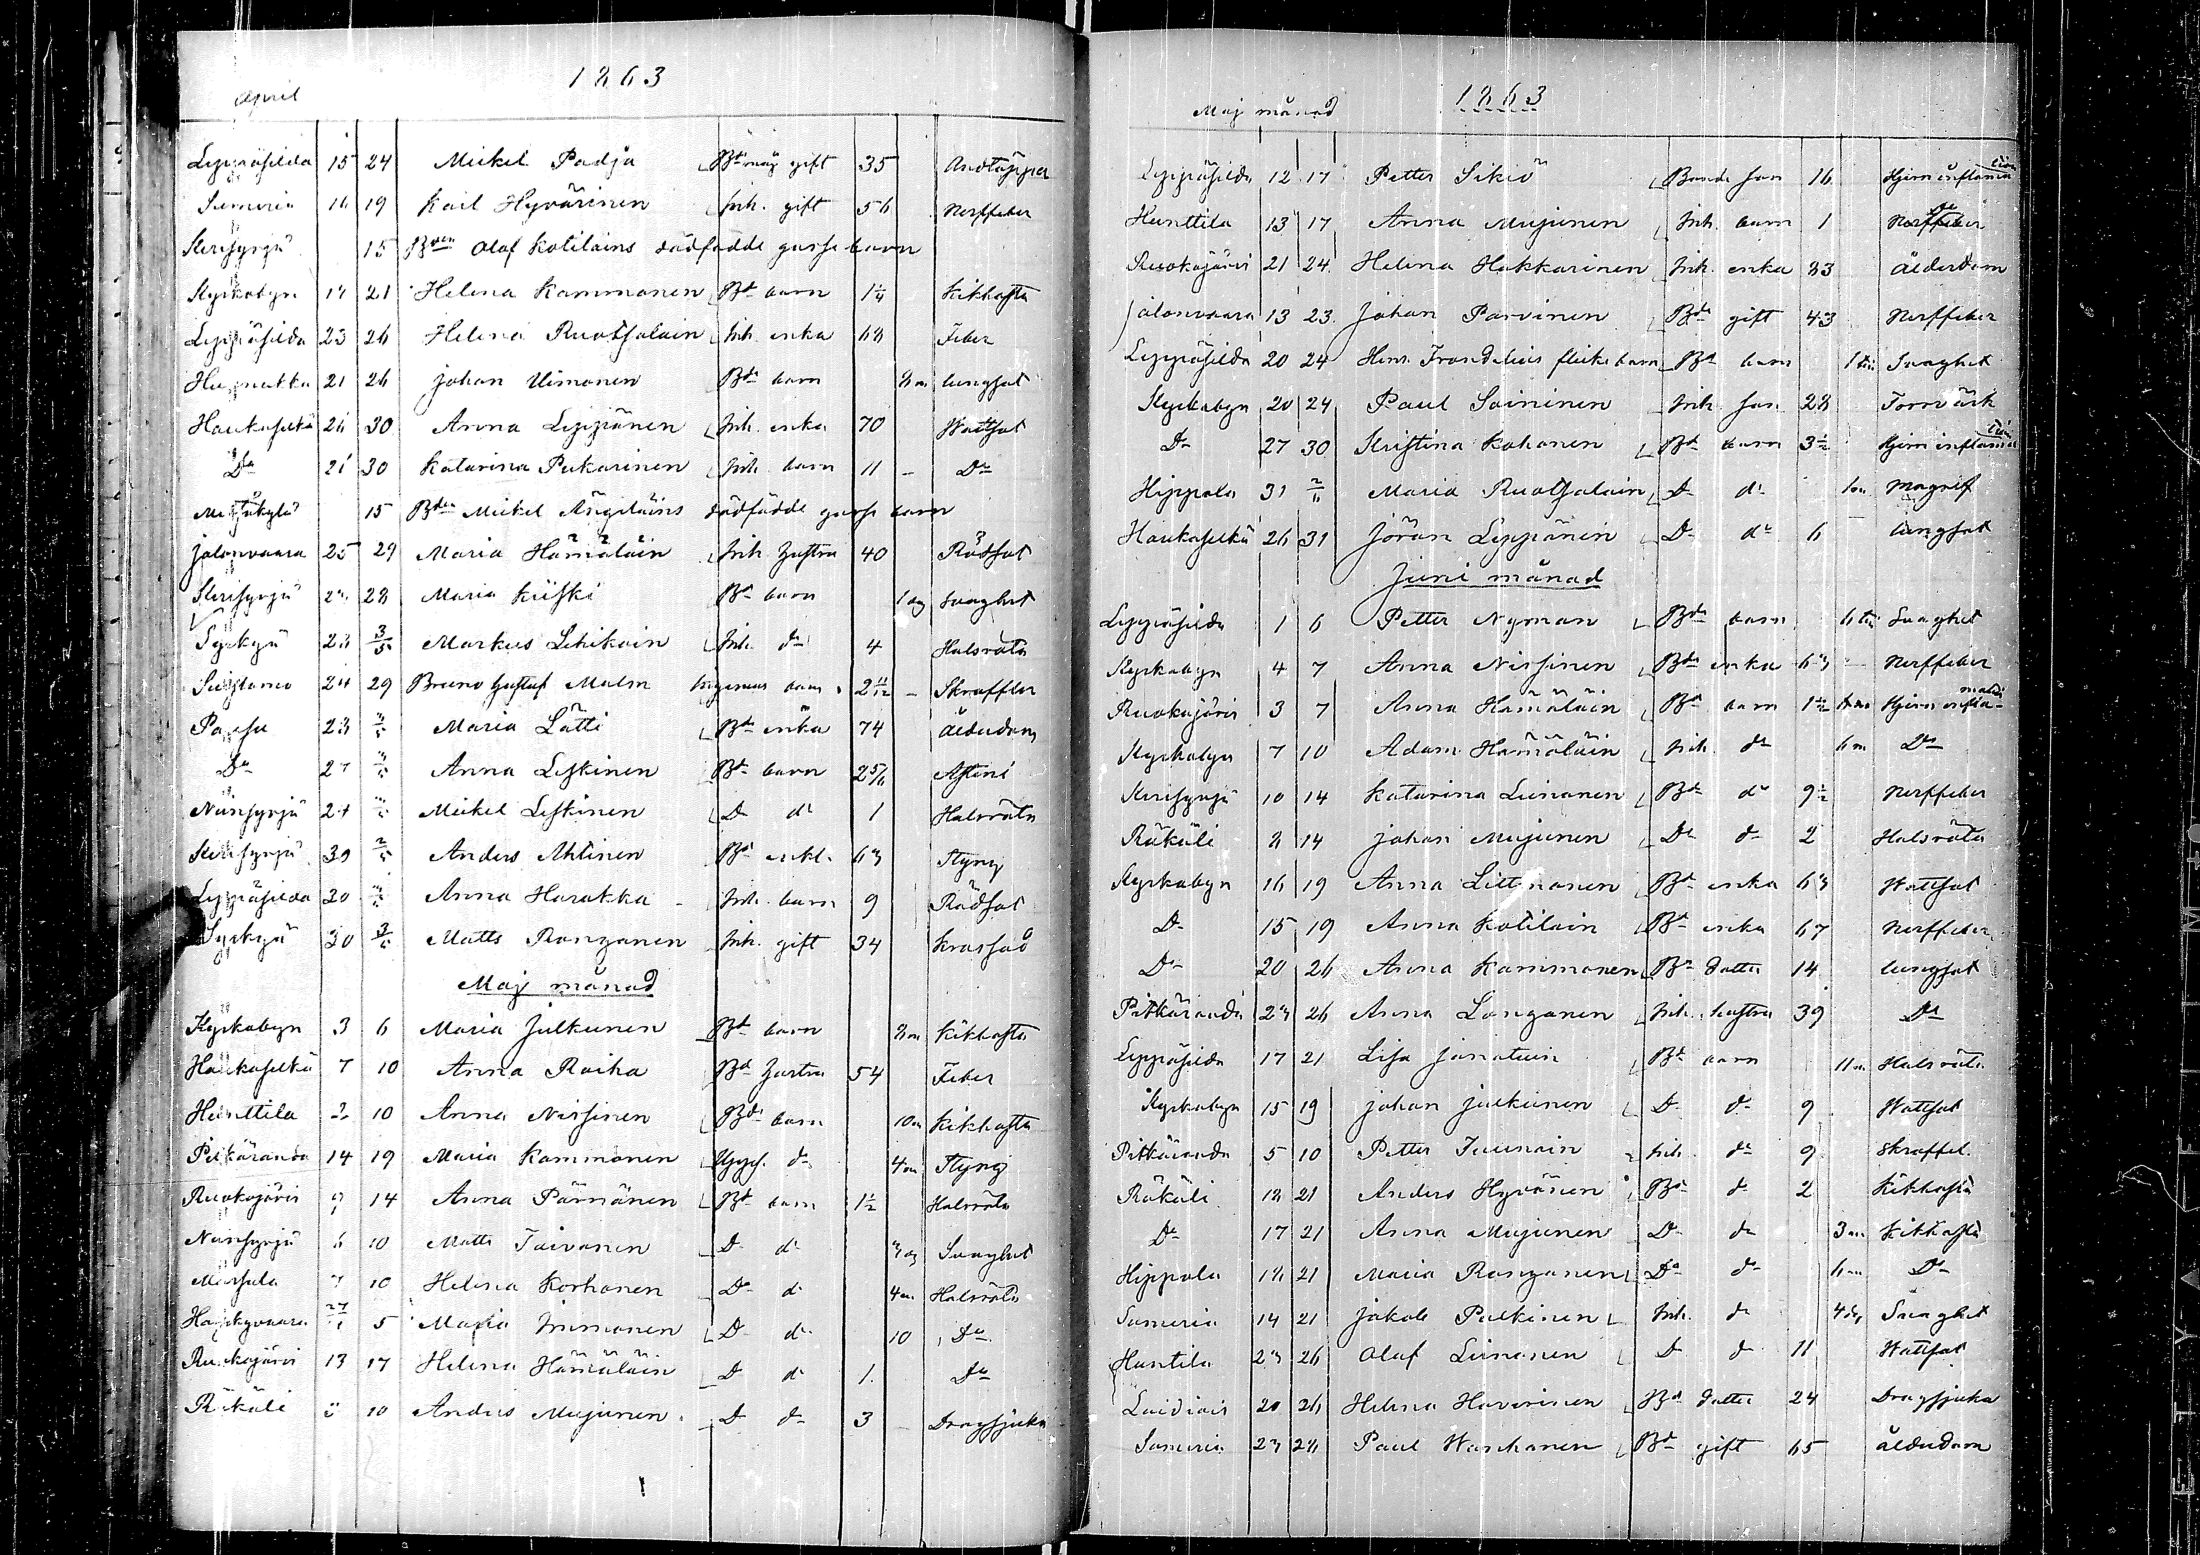 1863
April
Leppäsilda 15 24 Mickel Padja Bde måg gift 35 Andtäppa
Sumeria 16 19 Karl Hyvärinen Inh. gift 56 Nerffeber
Kerisyrjä 15 Bden Olof Kotilains dödfödde gosse barn
Kyrkobyn 17 21 Helena Kammonen Bde barn 1 1/4 Kikhosta
Leppäsilda 23 26 Helena Ruotsalain Inh. enka 68 Feber
21 26 Johan Uimonen Bde barn 8 m lungsot
Haukaselkä 26 30 Anna Leppänen Inh. enka 70 Wattsot
Do 21 30 Katarina Pukarinen Inh. barn 11 - Do
15 Bden Mickel Ängeläins dödfödde gosse barn
Jalonvaara 25 29 Maria Hämäläin Inh hustru 40 Rödsot
Kerisyrjä 28 Maria Kiiski Bde barn 1 dag Svaghet
Syskyä 28 3/5 Markus Lehikoin Inh. do 4 Halsröta
Suistamo 24 29 Bruno Gustaf Malm barn 2 11/12 - Skroffler
28 3/5 Maria Lätti Bde enka 74 Ålderdom
Do 27 3/5 Anna Leskinen Bde barn 2 5/6
Niinisyrjä 27 3/5 Mickel Leskinen Do do 1 Halsröta
Kerisyrjä 30 2/5 Anders Ahtinen Bde enkl. 63 Styng
Leppäsilda 30 3/5 Anna Harakka - Inh. barn 9 Rödsot
Syskyä 30 3/5 Matts Ronganen Inh. gift 34
Maj månad
Kyrkobyn 3 6 Maria Julkunen Bde barn 8 m Kikhosta
Haukaselkä 7 10 Anna Raiha Bde hustru 54 Feber
Hunttila 2 10 Anna Nissinen Bde barn 10 m Kikhosta
Pitkäranda 14 19 Maria Kammonen do 4 m Styng
Ruokojärvi 9 14 Anna Pärnänen Bde barn 1 1/2 Halsröta
Niinisyrjä 6 10 Matts Taivanen Do do 3 dg Svaghet
Mursula 7 10 Helena Korhonen Do do 4 m Halsröta
27/4 5 Maria Immonen Do do 10 Do
Ruokojärvi 13 17 Helena Hämäläin Do do 1. Do
Räkäli 8 10 Anders Mujunen Do do 3 Dragsjuka
1863
Maj månad
Leppäsilda 12 17 Petter Sikiö Bonde son 16 Hjerninflamation
Hunttila 13 17 Anna Mujunen Inh. barn 1 Nerffeber
Ruokojärvi 21 24 Helena Hakkarinen Inh. enka 83 Ålderdom
Jalonvaara 13 23 Johan Parvinen Bde gift 43 Nerffeber
Leppäsilda 20 24 Hem. Frondelius flicke barn Bde barn 1 tim Svaghet
Kyrkobyn 20 24 Paul Soininen Inh. son 28 Torrvärk
Do 27 30 Kristina Kohonen Bde barn 3 1/2 Hjerninflamation
Hippola 31 2/6 Maria Ruotsalain Do do 1 m Magref
Haukaselkä 26 31 Jöran Leppänen Do do 6 lungsot
Juni månad
Leppäsilda 1 6 Petter Nyman Bde barn 6 tim Svaghet
Kyrkobyn 4 7 Anna Nissinen Bde enka 63 - Nerffeber
Ruokojärvi 3 7 Anna Hämäläin Bde barn 1 1/2 Hjerninflamation
Kyrkobyn 7 10 Adam Hämäläin Inh. do 6 m Do
Kerisyrjä 10 14 Katarina Leinonen Bde do 9 1/2 Nerffeber
Räkäli 8 14 Johan Mujunen Do do 2 Halsröta
Kyrkobyn 16 19 Anna Littmanen Bde enka 63 Wattsot
Do 15 19 Anna Kotilain Bde enka 67 Nerffeber
Do 20 26 Anna Kammonen Bde dotter 14 lungsot
Pitkäranda 23 26 Anna Longanen Inh. hustru 39 Do
Leppäsilda 17 21 Lisa Janatuin Bde barn 11 m Halsröta
Kyrkobyn 15 19 Johan Julkunen Do do 9 Wattsot
Pitkäranda 5 10 Petter Juunain Inh. do 9 Skroffel.
Räkäli 18 21 Anders Hyvönen Bde do 2 Kikhosta
Do 17 21 Anna Mujunen Do do 3 m Kikhosta
Hippola 18 21 Maria Ronganen Do do 6 m Do
Sumeria 14 21 Jakob Pulkinen Inh. do 4 dg Svaghet
Huntila 23 26 Olof Leinonen Do do 11 Wattsot
20 26 Helena Haverinen Bde dotter 24 Dragsjuka
Sumeria 23 28 Paul Wänskänen Bde gift 65 ålderdom